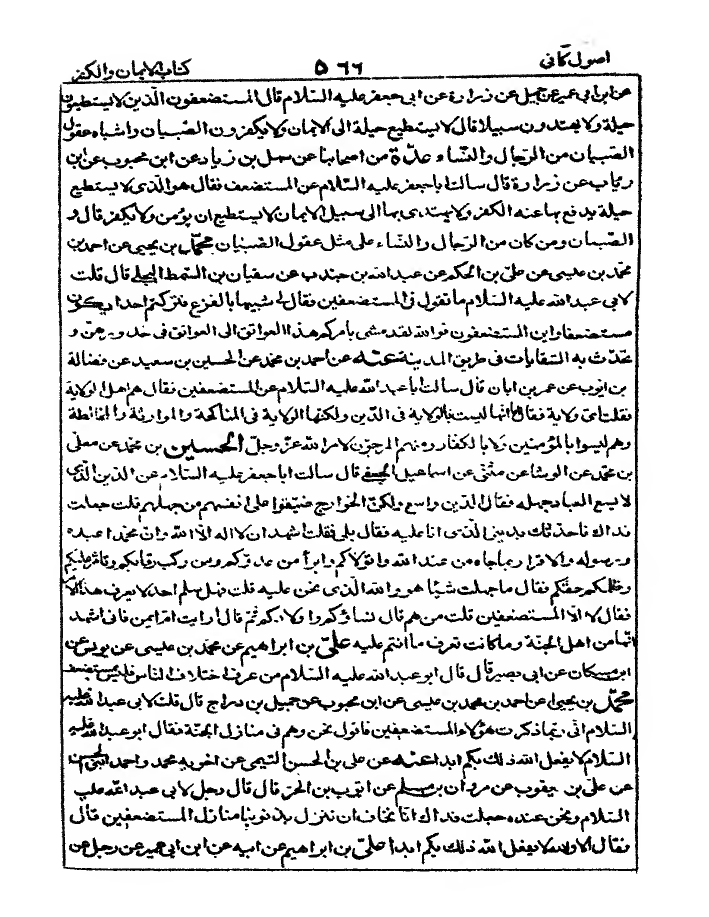 اصول کافی ٥٦٦ کتاب الایمان والکفر
عن ابن ابی عمیر عن جمیل عن زرارة عن ابی جعفر علیه السّلام قال المستضعفون الّذین لا یستطیعون
حیلة ولا یهتدون سبیلا قال لا یستطیع حیلة الی الایمان ولا یکفرون الصّبیان واشباه عقول
الصّبیان من الرّجال والنّساء عدّة من اصحابنا عن سهل بن زیاد عن ابن محبوب عن ابن
رئاب عن زرارة قال سالت اباجعفر علیه السّلام عن المستضعف فقال هو الّذی لا یستطیع
حیلة یدفع بها عنه الکفر ولا یهتدی بها الی سبیل الایمان لا یستطیع ان یؤمن ولا یکفر قال و
الصّبیان ومن کان من الرّجال والنّساء علی مثل عقول الصّبیان محمّد بن یحیی عن احمد بن
محمّد بن عیسی عن علیّ بن الحکم عن عبد الله بن جندب عن سفیان بن السّمط البجلی قال قلت
لابی عبد الله علیه السّلام ما تقول فی المستضعفین فقال لی شبیها بالفزع فترکتم احدا یکون
مستضعفا واین المستضعفون فوالله لقد مشی بامرکم هذا العواتق الی العواتق فی خدورهنّ و
تحدّث به السّقایات فی طریق المدینة عنه عن احمد بن محمد عن الحسین بن سعید عن فضالة
بن ایّوب عن عمر بن ابان قال سالت اباعبد الله علیه السّلام عن المستضعفین فقال هم اهل الولایة
فقلت ایّ ولایة فقال اما انّها لیست بالولایة فی الدّین ولکنّها الولایة فی المناکحة والموارثة والمخالطة
وهم لیسوا بالمؤمنین ولا بالکفّار ومنهم المرجون لامر الله عزّ وجلّ الحسین بن محمّد عن معلّی
بن محمّد عن الوشّا عن مثنّی عن اسماعیل الجعفی قال سالت اباجعفر علیه السّلام عن الدین الّذی
لا یسع العباد جهله فقال الدّین واسع ولکنّ الخوارج ضیّقوا علی انفسهم من جهلهم قلت جعلت
فداك فاحدّثك بدینی الّذی انا علیه فقال بلی فقلت اشهد ان لا اله الّا الله وانّ محمّدا عبده
ورسوله والاقرار بما جاء من عند الله واتولّاکم وابرأ من عدوّکم ومن رکب رقابکم وتامّر علیکم
وظلمکم حقّکم فقال ما جهلت شیئا هو والله الّذی نحن علیه قلت فهل سلم احد لا یعرف هذا الامر
فقال لا الّا المستضعفین قلت من هم قال نساؤکم واولادکم ثمّ قال ارایت امّ ایمن فانی اشهد
انّها من اهل الجنّة وما کانت تعرف ما انتم علیه علیّ بن ابراهیم عن محمّد بن عیسی عن یونس عن
ابن مسکان عن ابی بصیر قال قال ابو عبد الله علیه السّلام من عرف اختلاف النّاس فلیس بمستضعف
محمّد بن یحیی عن احمد بن محمد بن عیسی عن ابن محبوب عن جمیل بن درّاج قال قلت لابی عبد الله علیه
السّلام انّی ربّما ذکرت هؤلاء المستضعفین فاقول نحن وهم فی منازل الجنّة فقال ابو عبد الله علیه
السّلام لا یفعل الله ذلك بکم ابدا عنه عن علی بن الحسن التیمی عن اخویه محمد واحمد ابنی الحسن
عن علیّ بن یعقوب عن مروان بن مسلم عن ایّوب بن الحرّ قال قال رجل لابی عبد الله علیه
السّلام ونحن عنده جعلت فداك انّا نخاف ان ننزل بذنوبنا منازل المستضعفین قال
فقال لا والله لا یفعل الله ذلك بکم ابدا علیّ بن ابراهیم عن ابیه عن ابن ابی عمیر عن رجل عن